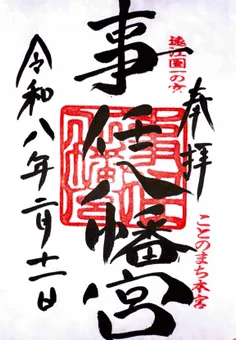 奉拝
遠江國一の宮
ことのまち本宮
事任八幡宮
令和八年二月十一日